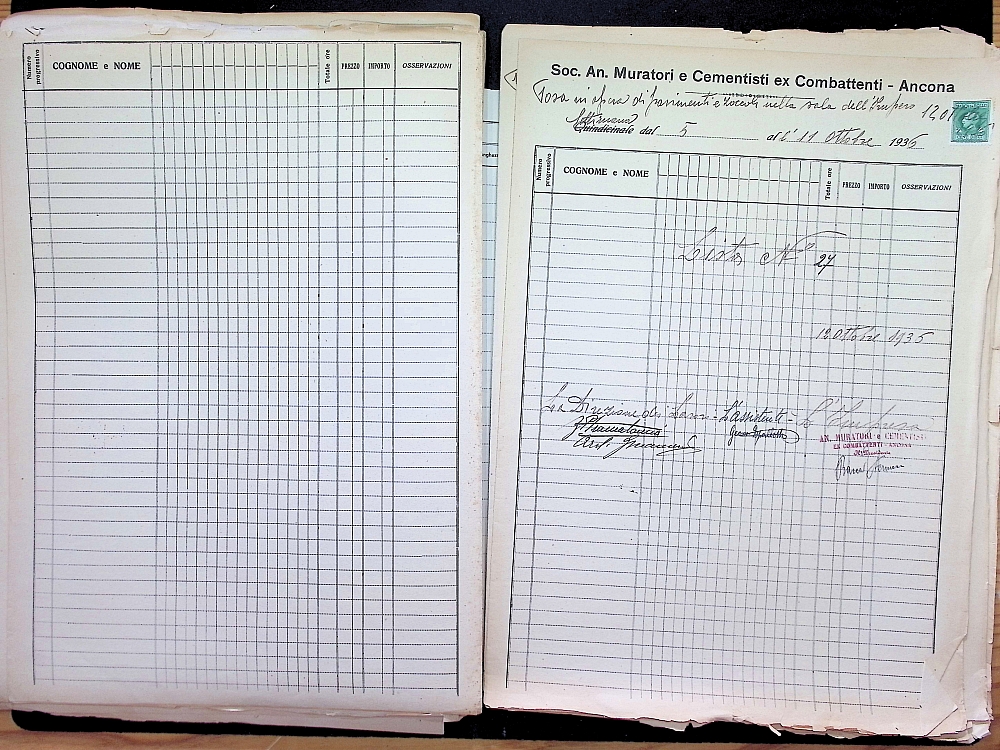 Numero progressivo COGNOME e NOME Totale ore PREZZO IMPORTO OSSERVAZIONI
Soc. An. Muratori e Cementisti ex Combattenti - Ancona
Posa in opera di pavimenti e zoccoli nella sala dell'Impero
Settimana
Quindicinale dal 5 al l' 11 Ottobre 1935
Numero progressivo COGNOME e NOME Totale ore PREZZO IMPORTO OSSERVAZIONI
Lista N° 27
12 Ottobre 1935
La Direzione dei Lavori - L'assistente - L'Impresa
AN. MURATORI e CEMENTISTI
EX COMBATTENTI - ANCONA